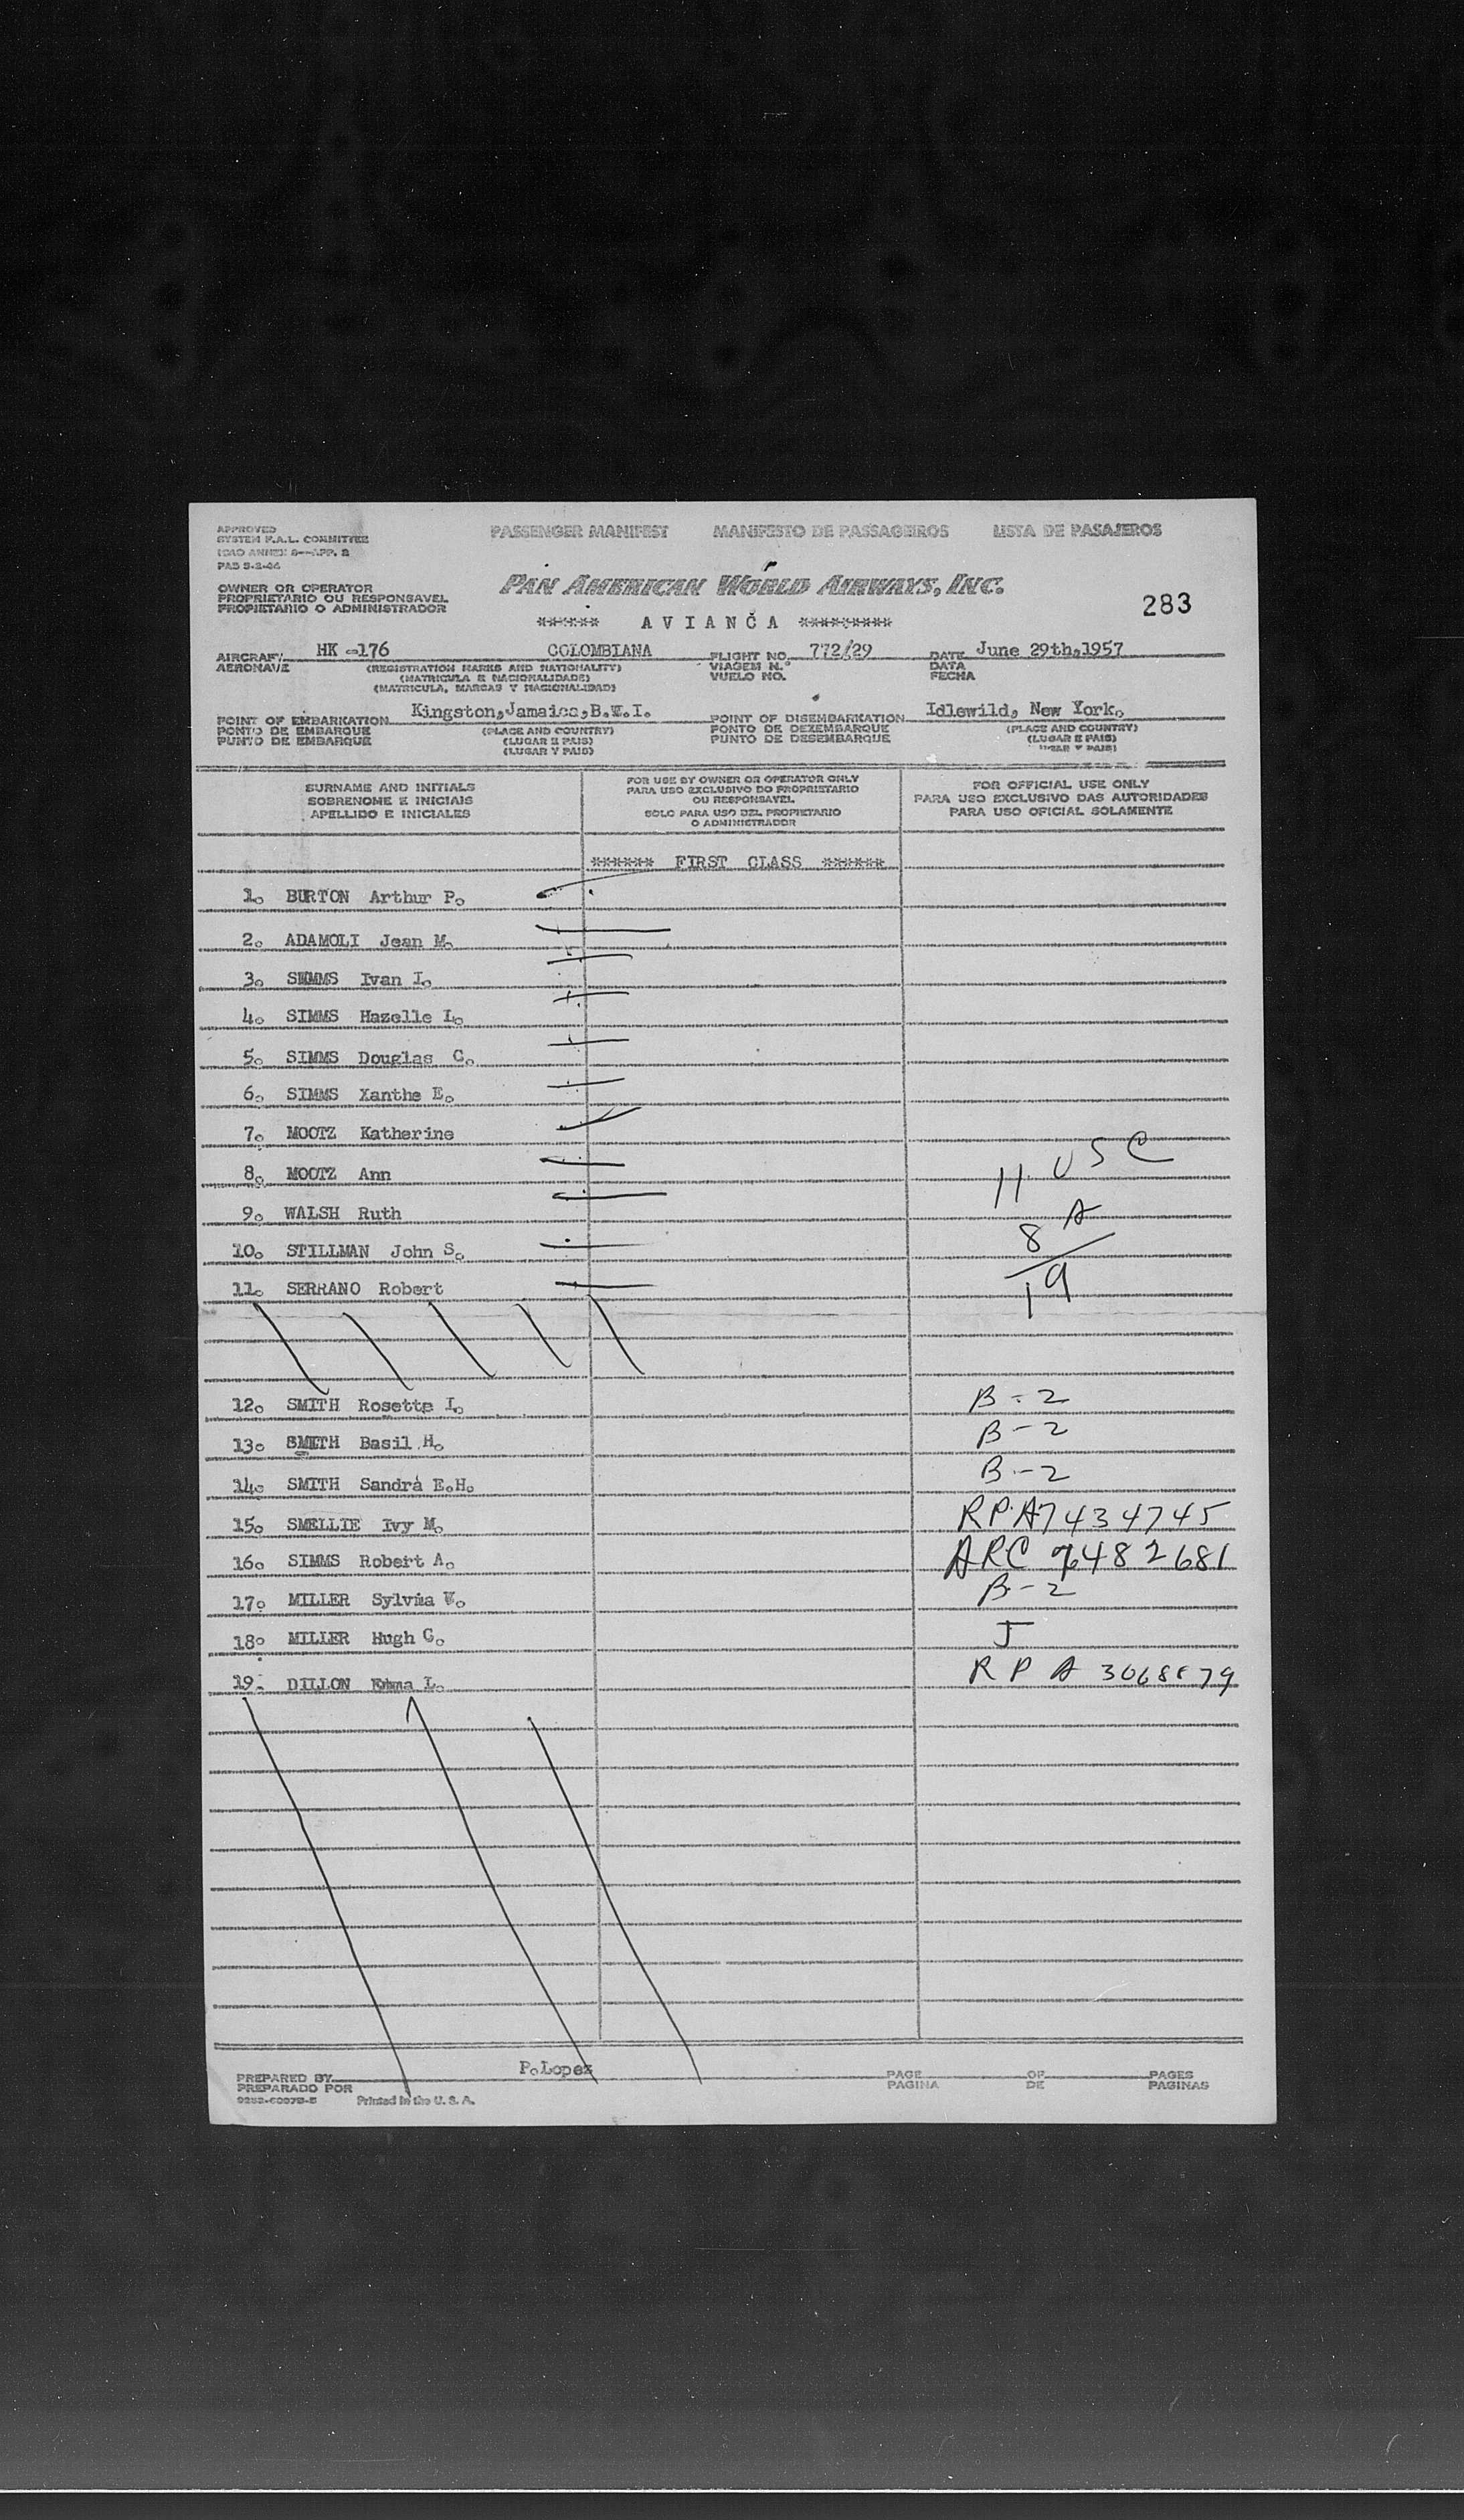 APPROVED
SYSTEM F.A.L. COMMITTEE
ICAO ANNEX 9—APP. 2
PASSENGER MANIFEST MANIFESTO DE PASSAGEIROS LISTA DE PASAJEROS
OWNER OR OPERATOR
PROPRIETARIO OU RESPONSAVEL
PROPIETARIO O ADMINISTRADOR
PAN AMERICAN WORLD AIRWAYS, INC.
283
****** AVIANCA *********
AIRCRAFT HK -176 COLOMBIANA FLIGHT NO. 772/29 DATE June 29th,1957
AERONAVE (REGISTRATION MARKS AND NATIONALITY) VIAGEM N.º DATA
(MATRICULA E NACIONALIDADE) VUELO NO. FECHA
(MATRICULA, MARCAS Y NACIONALIDAD)
POINT OF EMBARKATION Kingston,Jamaica,B.W.I. POINT OF DISEMBARKATION Idlewild, New York.
PONTO DE EMBARQUE (PLACE AND COUNTRY) PONTO DE DEZEMBARQUE (PLACE AND COUNTRY)
PUNTO DE EMBARQUE (LUGAR E PAIS) PUNTO DE DESEMBARQUE (LUGAR E PAIS)
(LUGAR Y PAIS) (LUGAR Y PAIS)
SURNAME AND INITIALS
SOBRENOME E INICIAIS
APELLIDO E INICIALES
FOR USE BY OWNER OR OPERATOR ONLY
PARA USO EXCLUSIVO DO PROPRIETARIO
OU RESPONSAVEL
SOLO PARA USO DEL PROPIETARIO
O ADMINISTRADOR
FOR OFFICIAL USE ONLY
PARA USO EXCLUSIVO DAS AUTORIDADES
PARA USO OFICIAL SOLAMENTE
****** FIRST CLASS ******
1. BURTON Arthur P.
2. ADAMOLI Jean M.
3. SIMMS Ivan I.
4. SIMMS Hazelle L.
5. SIMMS Douglas C.
6. SIMMS Xanthe E.
7. MOOTZ Katherine
8. MOOTZ Ann 11 USC
9. WALSH Ruth
10. STILLMAN John S. 8 A
11. SERRANO Robert 19
12. SMITH Rosetta I. B-2
13. SMITH Basil H. B-2
14. SMITH Sandra E.H. B-2
15. SMELLIE Ivy M. RP A7434745
16. SIMMS Robert A. ARC
17. MILLER Sylvia W. B-2
18. MILLER Hugh G. J
19. DILLON L. RP A
PREPARED BY P.Lopez PAGE OF PAGES
PREPARADO POR PAGINA DE PAGINAS
Printed in the U. S. A.